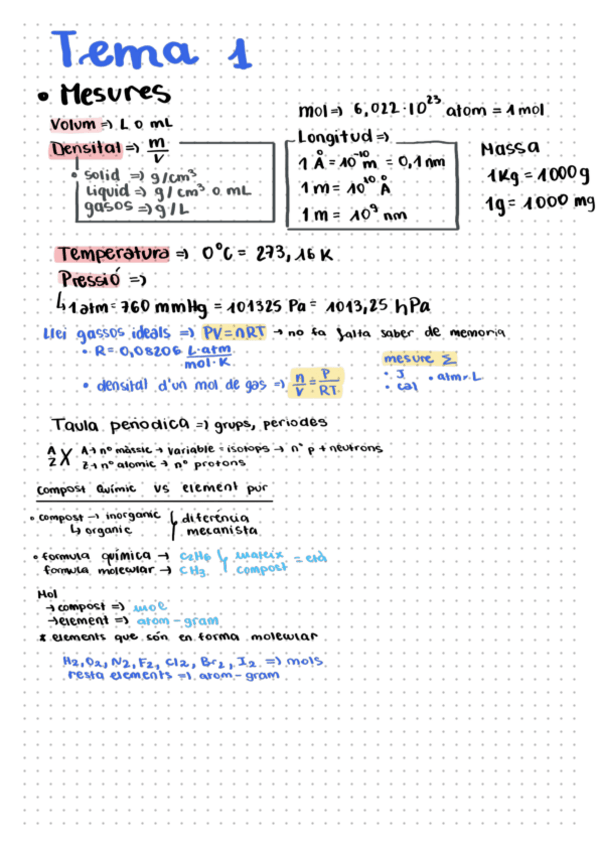 Tema 1
• Mesures
mol => 6,022·10²³ atom = 1 mol
Volum => L o mL
Densitat => m/v
• solid => g/cm³
liquid => g/cm³ o mL
gasos => g/L
Longitud =>
1 Å = 10⁻¹⁰ m = 0,1 nm
1 m = 10¹⁰ Å
1 m = 10⁹ nm
Massa
1 Kg = 1000 g
1g = 1000 mg
Temperatura => 0°C = 273,16 K
Pressió =>
↳ 1 atm = 760 mmHg = 101325 Pa = 1013,25 hPa
Llei gassos ideals => PV = nRT → no fa falta saber de memoria
• R = 0,08206 L·atm/mol·K
• densitat d'un mol de gas => n/V = P/RT
mesure Σ
• J
• cal
• atm·L
Taula periodica => grups, periodes
A/Z X A → nº màssic → variable = isotops → nº p + neutrons
Z → nº atomic → nº protons
Compost Químic vs element pur
• compost → inorganic
↳ organic
diferència
mecanista
• formula química → C2H6
formula molecular → CH3
mateix
compost
= età
Mol
→ compost => mol
→ element => atom-gram
* elements que són en forma molecular
H2, O2, N2, F2, Cl2, Br2, I2 => mols
resta elements => atom-gram